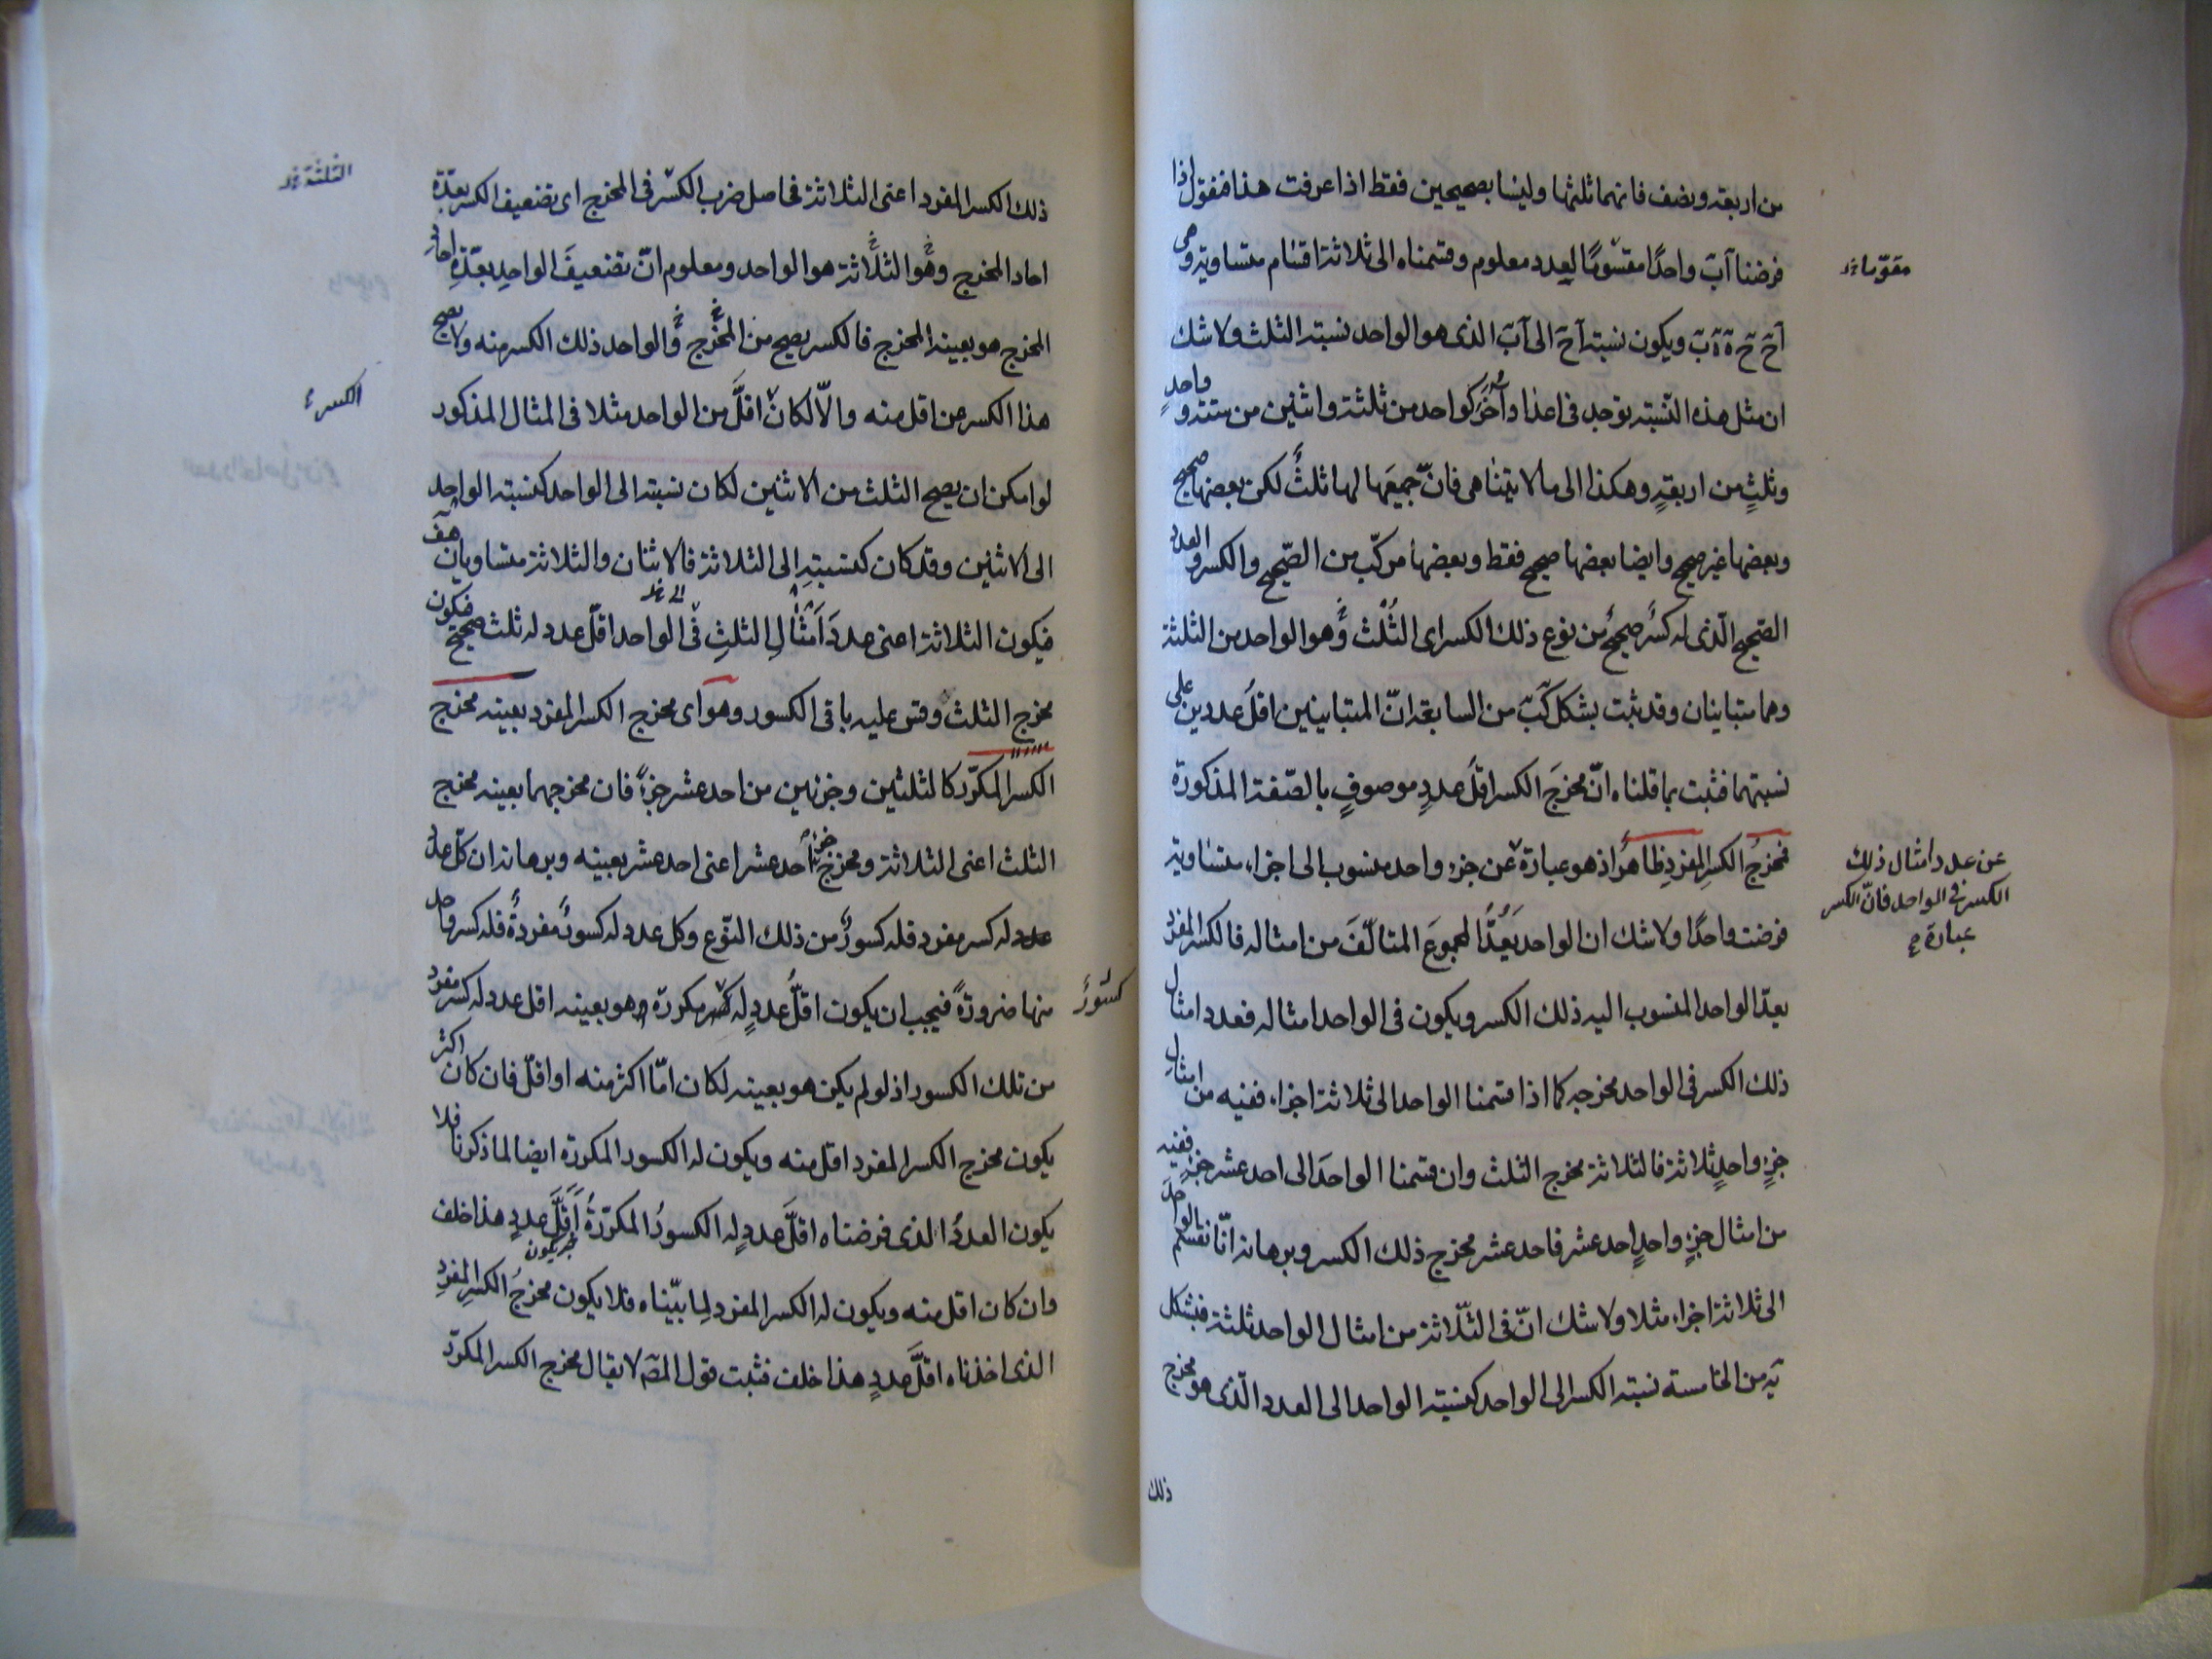 من اربعة ونصف فانهما ثلثها وليسا بصحيحين فقط اذا عرفت هذا فنقول اذا
فرضنا اب واحدًا مقسومًا لعدد معلوم وقسمناه الى ثلاثة اقسام متساوية وهى
مقوّما
ويكون نسبة اج الى اب الذى هو الواحد نسبة الثلث ولا شك
ان مثل هذه النّسبة يوجد فى اعداد اُخَر كواحد من ثلثة واثنين من ستة وواحدٍ
وثلثٍ من اربعةٍ وهكذا الى ما لا يتناهى فانّ جميعَها لها ثلثٌ لكن بعضها صحيح
وبعضها غير صحيح وايضا بعضها صحيح فقط وبعضها مركّب من الصّحيح والكسر والعدد
الصّحيح الّذى له كسرٌ صحيحٌ من نوع ذلك الكسر اى الثُلُث وهو الواحد من الثلثة
وهما متباينان وقد ثبت بشكل كَبّ من السابعة انّ المتباينين اقلُ عددين على
نسبتهما فثبت بما قلناه انّ مخرجَ الكسر اقلّ عددٍ موصوفٍ بالصّفة المذكورة
فمخرجُ الكسرِ المفردِ ظاهرٌ اذ هو عبارة عن جزء واحد منسوب الى اجزاء متساوية
عن عدد امثال ذلك
الكسر فى الواحد فانّ الكسر
عبارة
فرضت واحدًا ولا شك ان الواحد يَعُدُّ المجموعَ المتألّفَ من امثاله فالكسر المفرد
يعدّ الواحد المنسوب اليه ذلك الكسر ويكون فى الواحد امثاله فعدد امثال
ذلك الكسر فى الواحد مخرجه كما اذا قسمنا الواحد الى ثلاثة اجزاء ففيه من امثالِ
جزءٍ واحدٍ ثلاثة فالثلاثة مخرج الثلث وان قسمنا الواحدَ الى احد عشر جزءً ففيه
من امثال جزءٍ واحدٍ احد عشر فاحد عشر مخرج ذلك الكسر وبرهانه انّا نقسم الواحدَ
الى ثلاثة اجزاء مثلا ولا شك انّ فى الثّلاثة من امثال الواحد ثلثة فبشكل
يَه من الخامسة نسبة الكسر الى الواحد كنسبة الواحد الى العدد الّذى هو مخرج
ذلك
ذلك الكسر المفرد اعنى الثلاثة فحاصل ضرب الكسر فى المخرج اى تضعيف الكسر بعدّة
الثلثة
احاد المخرج وهو الثلاثة هو الواحد ومعلوم انّ تضعيفَ الواحدِ بعدّةِ احادِ
المخرج هو بعينه المخرج فالكسر يصح من المخرج والواحد ذلك الكسر منه ولا يصح
هذا الكسر من اقل منه والّا لكان اقلَّ من الواحد مثلا فى المثال المذكور
الكسر
لو امكن ان يصح الثلث من الاثنين لكان نسبته الى الواحد كنسبة الواحد
الى الاثنين وقد كان كنسبتِهِ الى الثلاثة فالاثنان والثلاثة متساويان هف
فيكون الثلاثة اعنى عددَ اَمثالِ الثلثِ فى الواحد اقلّ عدد له ثلث صحيح فيكون
مخرج الثلث وقس عليه باقى الكسور وهو اى مخرج الكسر المفرد بعينه مخرج
الكسر المكرّر كالثلثين وجزئين من احد عشر جزءً فان مخرجهما بعينه مخرج
الثلث اعنى الثلاثة ومخرج جزءِ احد عشر اعنى احد عشر بعينه وبرهانه ان كلّ عدد
عدد له كسر مفرد فله كسورٌ من ذلك النّوع وكل عدد له كسورٌ مفردةٌ فله كسر واحد
منها ضرورةً فيجب ان يكون اقلُّ عددٍ له مكررة وهو بعينه اقل عدد له كسر مفرد
كسُورٌ
من تلك الكسور اذ لو لم يكن هو بعينه لكان امّا اكثر منه او اقلّ فان كان اكثر
يكون مخرج الكسر المفرد اقل منه ويكون له الكسور المكررة ايضا لما ذكرنا فلا
يكون العددُ الذى فرضناه اقلَّ عددٍ له الكسورُ المكرّرةُ اَقلَّ عددٍ هذا خلف
وان كان اقل منه ويكون له الكسر المفرد لِما بيّناه فلا يكون مخرجُ الكسرِ المفردِ
الذى اخذناه اقلَّ عددٍ هذا خلف فثبت قول المصَ لا يقال مخرج الكسر المكرّر